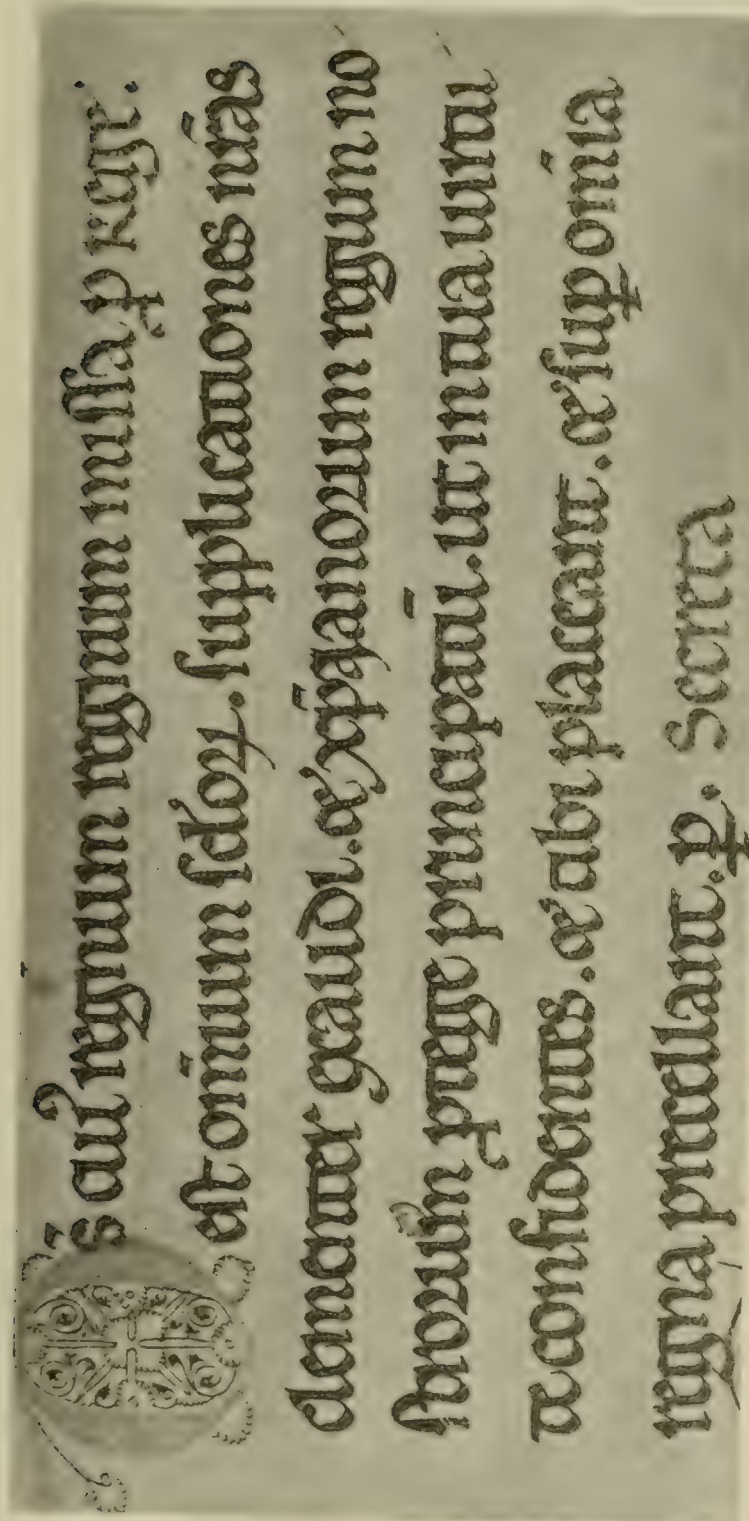 D̄s cuiꝰ regnum regnum missa ꝓ rege:
est om̄ium scl̄oꝝ. supplicationes nr̄as
clementer exaudi. & xp̄ianorum regum no
strorum ꝓtege principatū. ut in tua uirtu
te confidentes. & tibi placeant. & suꝑ om̄ia
regna precellant. ꝑ. Secreta